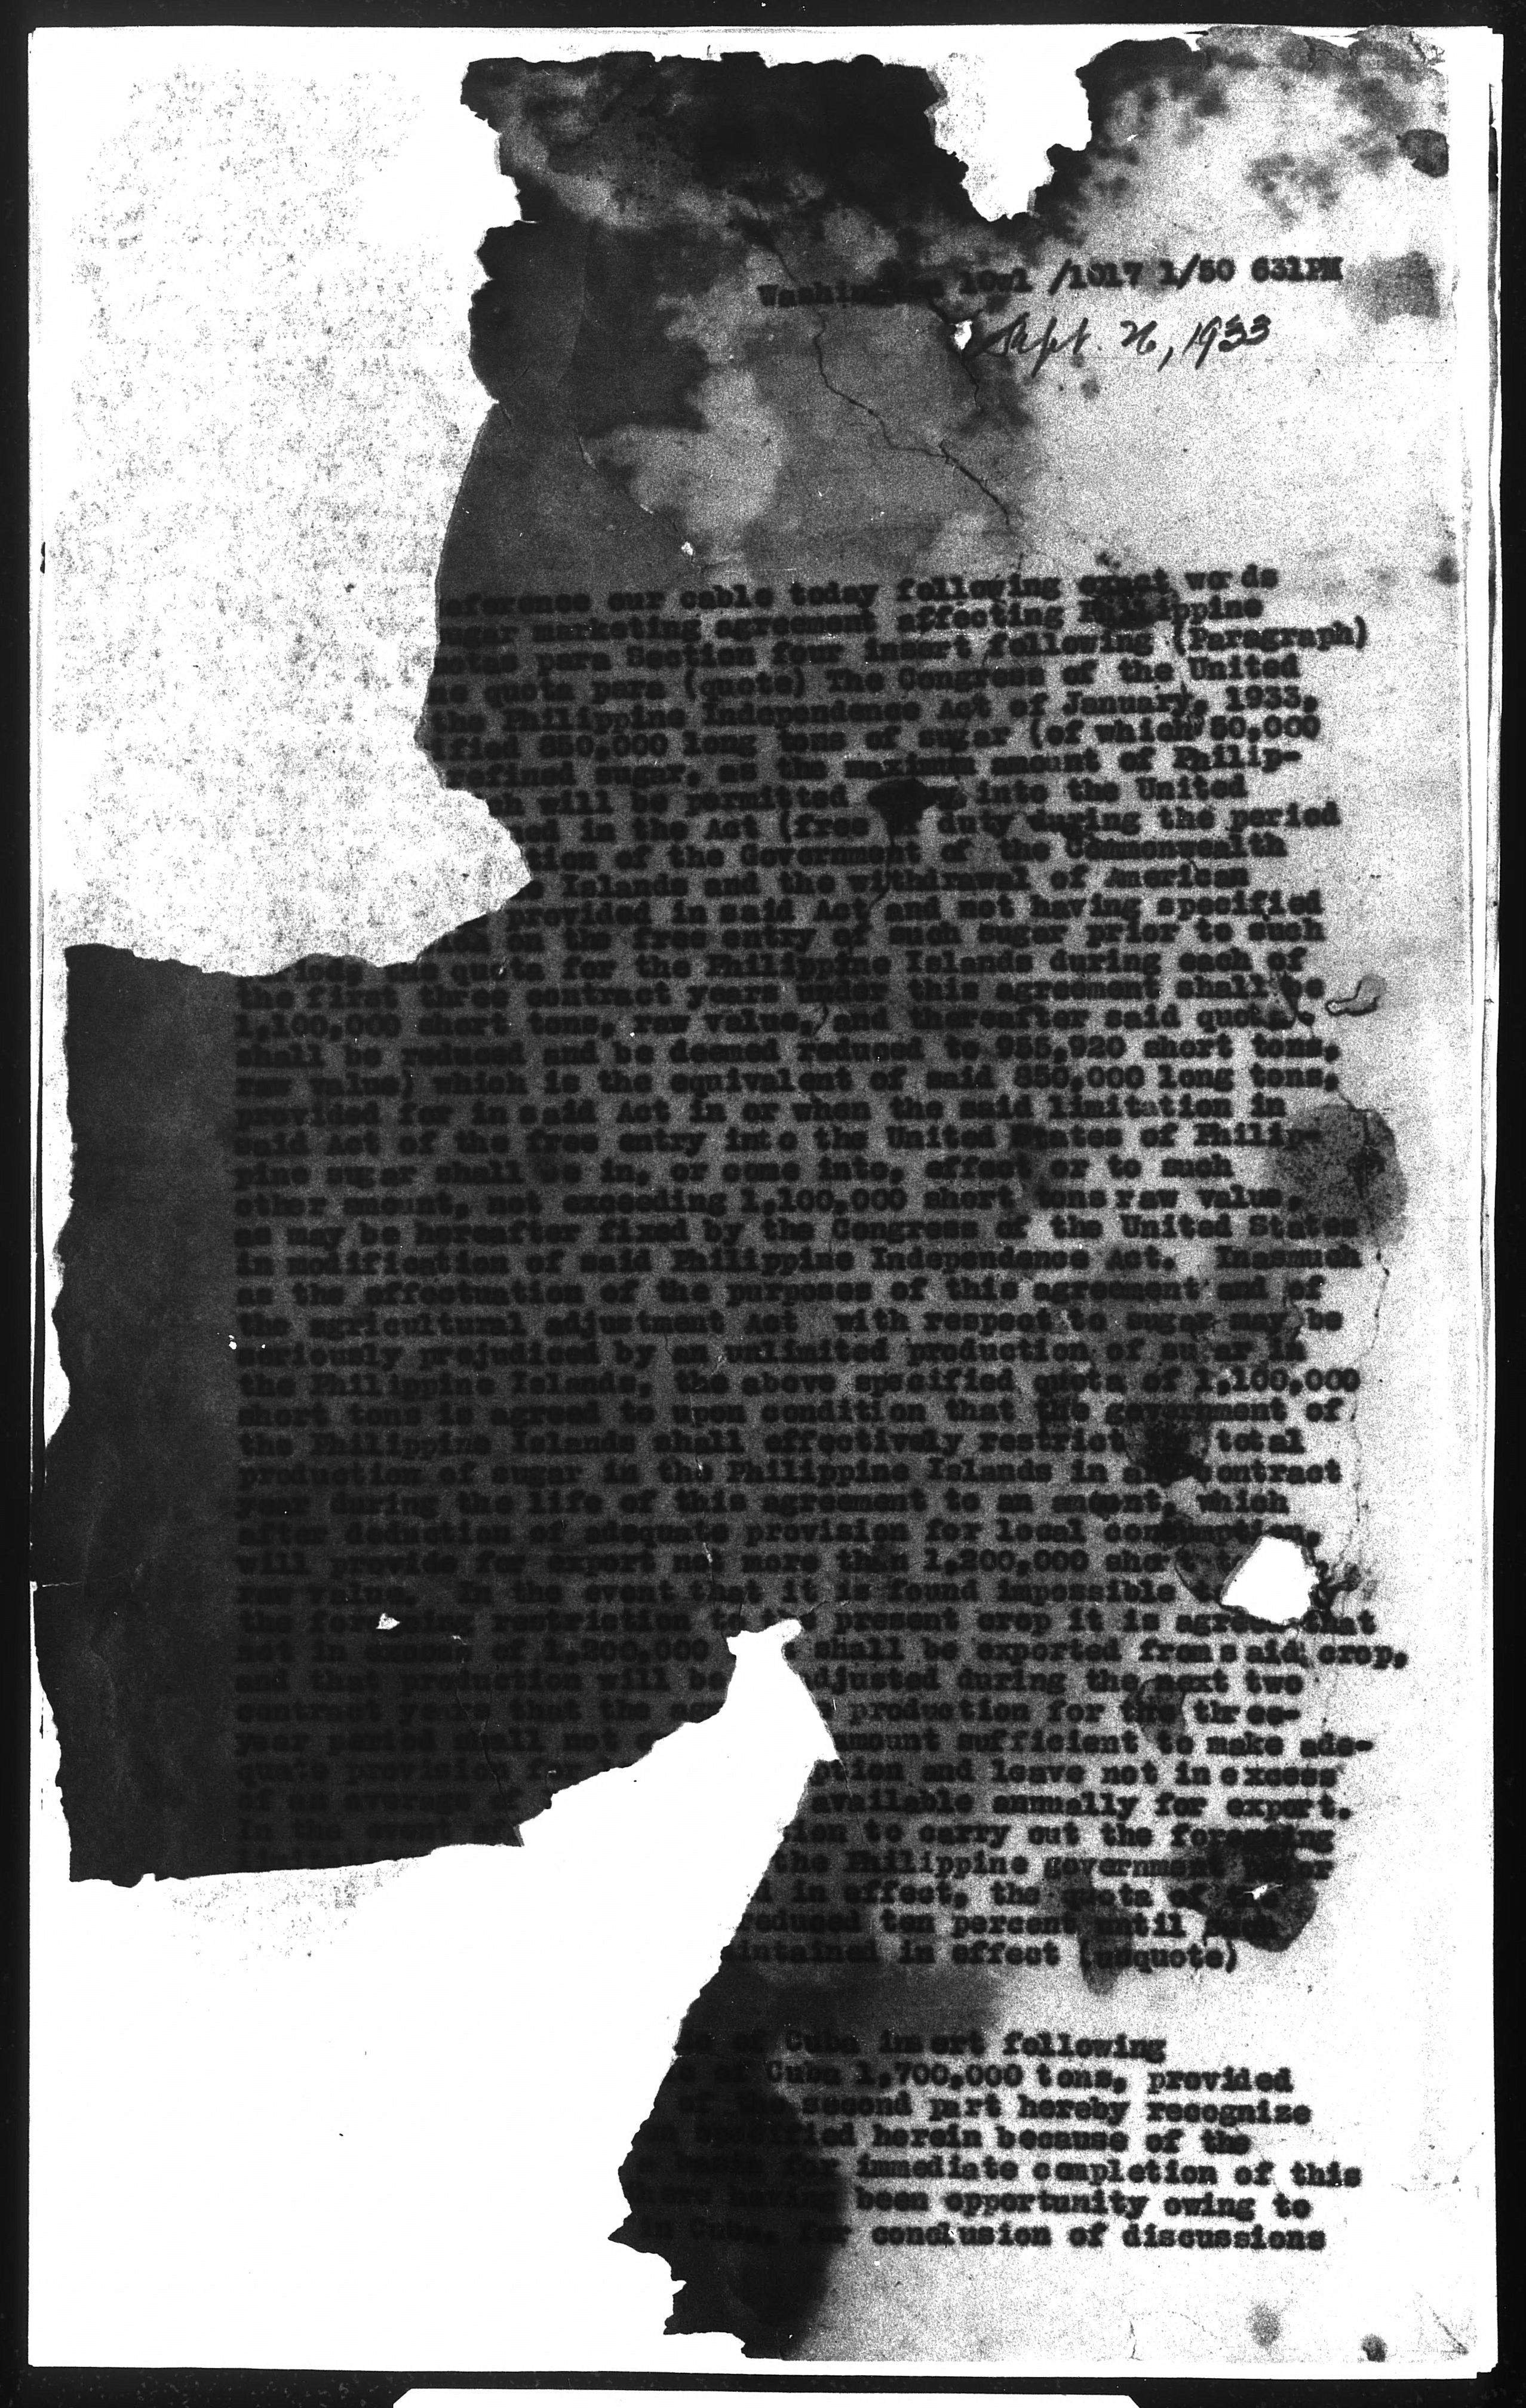 /1017 1/50 631PM
Sept. 26, 1933
eference our cable today following exact words
ugar marketing agreement affecting Philippine
otas para Section four insert following (Paragraph)
ne quota para (quote) The Congress of the United
the Philippine Independence Act of January, 1933,
ified 850,000 long tons of sugar (of which 50,000
refined sugar, as the maximum amount of Philip-
ch will be permitted into the United
ned in the Act (free duty during the period
tion of the Government of the Commonwealth
e Islands and the withdrawal of American
provided in said Act and not having specified
on the free entry of such sugar prior to such
quota for the Philippine Islands during each of
the first three contract years under this agreement shall be
1,100,000 short tons, raw value, and thereafter said quota
shall be reduced and be deemed reduced to 955,920 short tons,
raw value) which is the equivalent of said 850,000 long tons,
provided for in said Act in or when the said limitation in
said Act of the free entry into the United States of Philip-
pine sugar shall be in, or come into, effect or to such
other amount, not exceeding 1,100,000 short tons raw value,
as may be hereafter fixed by the Congress of the United States
in modification of said Philippine Independence Act. Inasmuch
as the effectuation of the purposes of this agreement and of
the agricultural adjustment Act with respect to sugar may be
seriously prejudiced by an unlimited production of sugar in
the Philippine Islands, the above specified quota of 1,100,000
short tons is agreed to upon condition that the government of
the Philippine Islands shall effectively restrict total
production of sugar in the Philippine Islands in contract
year during the life of this agreement to an amount, which
after deduction of adequate provision for local consumption,
will provide for export not more than 1,200,000 short
raw value. In the event that it is found impossible
the foregoing restriction to present crop it is agreed that
not in excess of 1,200,000 shall be exported from said crop,
and that production will be djusted during the next two
contract years that the production for the three-
year period shall not amount sufficient to make ade-
quate provision for ption and leave not in excess
of an average of available annually for export.
In the event ion to carry out the foregoing
the Philippine government
in effect, the quota of
reduced ten percent until such
aintained in effect (unquote)
of Cuba insert following
of Cuba 1,700,000 tons, provided
of the second part hereby recognize
specified herein because of the
basis for immediate completion of this
having been opportunity owing to
in Cuba, for conclusion of discussions